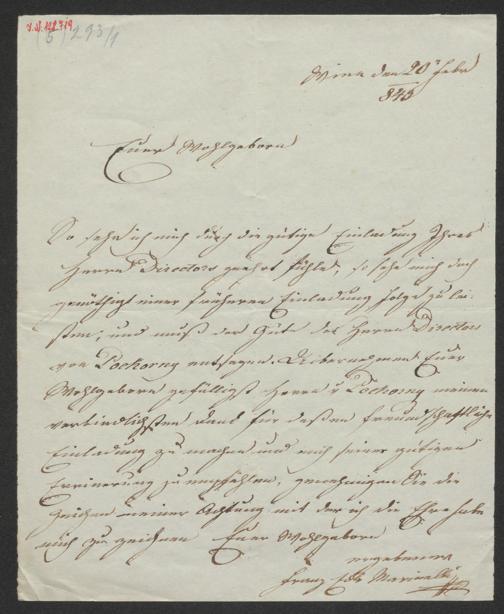 (5) 293/1
Wien den 20t Febr
843
Euer Wohlgeborn
So sehr ich mich durch die gütige Einladung Ihres
Herrn Directors geehrt fühle, so sehe mich doch
genöthigt einer früheren Einladung folge zu lei-
sten, und muß der Güte des Herrn Directors
von Pockorny entsagen. Uibernehmen Euer
Wohlgeborn gefälligst Herrn v Pockorny meinen
verbindlichsten Dank für deßen freundschaftliche
Einladung zu machen und mich seiner gütigen
Errinerung zu empfehlen, genehmigen Sie die
Zeichen meiner Achtung mit der ich die Ehre habe
mich zu zeichnen Euer Wohlgeborn
ergebenster
Franz Marinelli